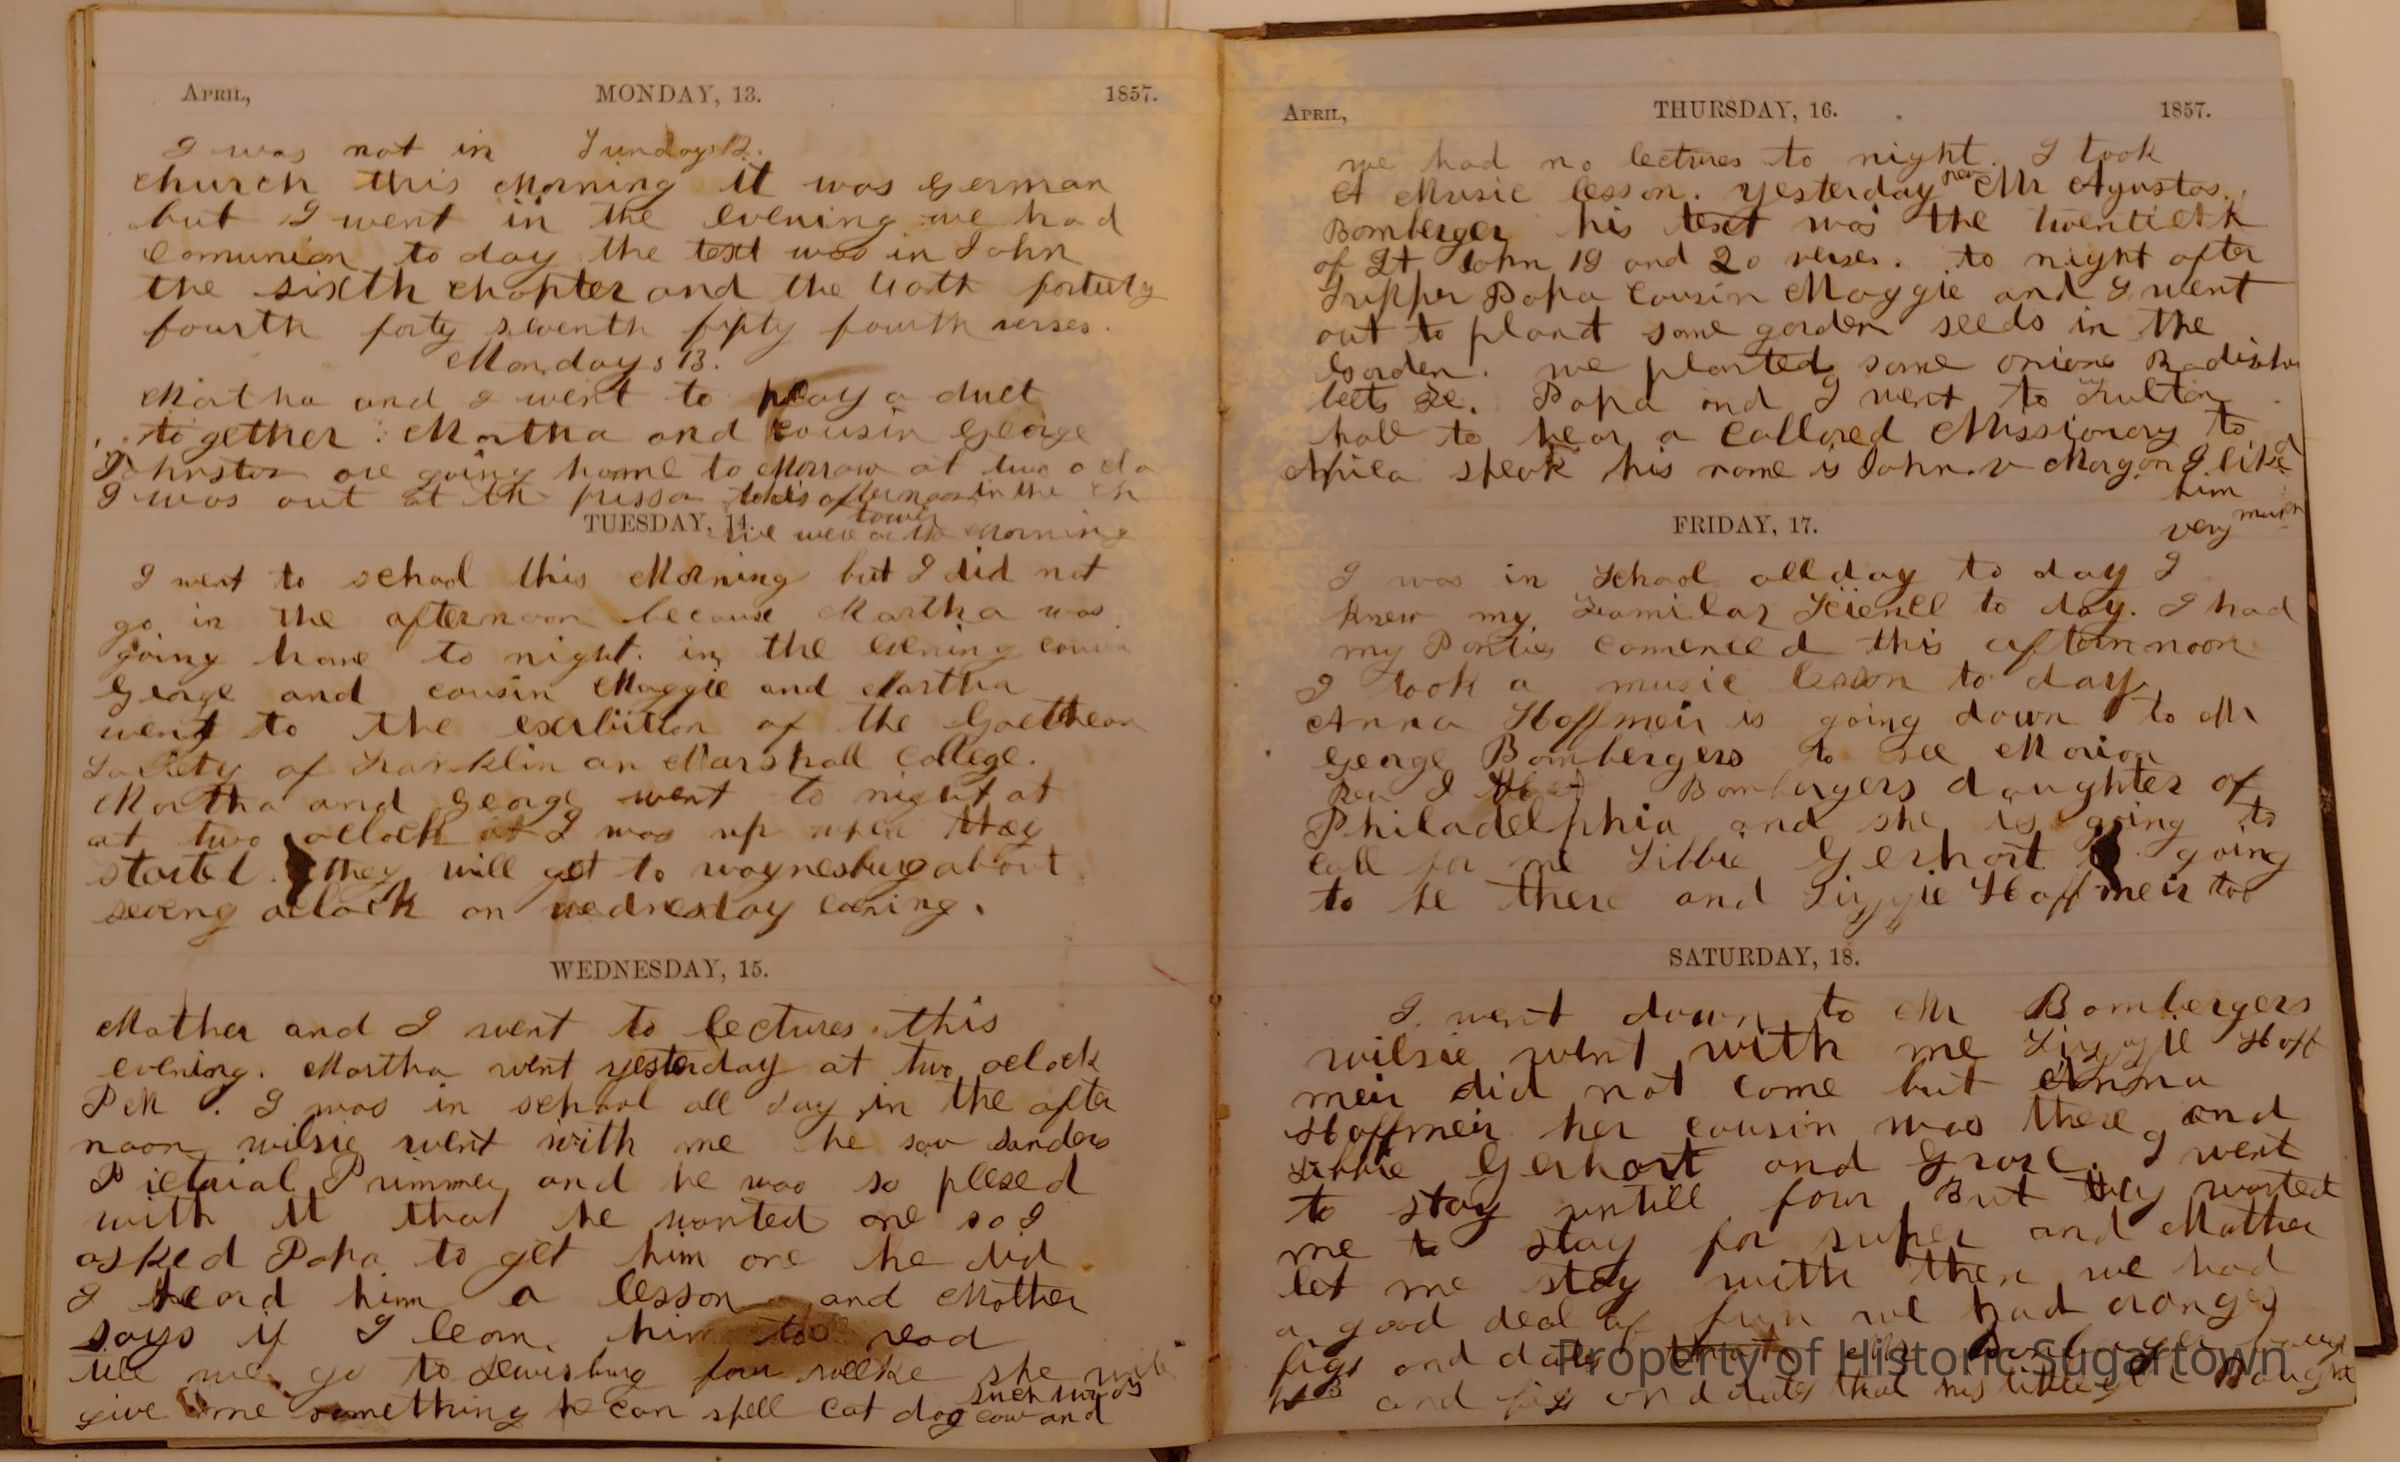 April, MONDAY, 13. 1857.
I was not in Sunday 12.
church this Morning it was German
but I went in the evening we had
Comunion to day the text was in John
the sixth chapter and the
fourth forty seventh fifty fourth verses.
Monday, 13.
Martha and I went to play a duet
together. Martha and Cousin George
Johnston are going home to Morrow at two
I was out at the this afternoon in the
TUESDAY, 14.
tower
We were on the Morning
I went to school this Morning but I did not
go in the afternoon because Martha was
going home to night. in the evening cousin
George and cousin Maggie and Martha
went to the of the Goethean
Society of Franklin an Marshall College.
Martha and George went to night at
at two oclock I was up when they
started. they will get to waynesburg about
seveng oclock on wednesday evening.
WEDNESDAY, 15.
Mother and I went to lectures this
evening. Martha went yesterday at two oclock
P M. I was in school all day in the after
noon wilsie went with me he saw Sanders
Pictorial Primmer and he was so plesed
with it that he wanted one so I
asked Papa to get him one he did
I heard him a lesson and Mother
says if I learn him to read
till we go to Lewisburg four weeks she will
give me something he can spell cat dog cow and
such words
April, THURSDAY, 16. 1857.
we had no lectures to night. I took
A Music lesson. yesterday rev Mr Agustos.
Bomberger his text was the twentieth
of St John 19 and 20 verses. to night after
Supper Papa Cousin Maggie and I went
out to plant some garden seeds in the
Garden. we planted some onions Radishes
beets &c. Papa and I went to Fulton
hall to hear a Collored Missionary to
Africa speak his name is John. v Morgan I liked
him
very much
FRIDAY, 17.
I was in School all day to day I
knew my Familar Science to day. I had
my comenced this afternnoon
I took a music lesson to day
Anna Hoffmeir is going down to Mr
George Bombergers to see Marion
Rev J Bombergers daughter of
Philadelphia and she is going to
call for me Libbie Gerhart is going
to be there and Lizzie Hoffmeir too
SATURDAY, 18.
I went down to Mr Bombergers
wilsie went with me Lizzie Hoff
meir did not come but Anna
Hoffmeir her cousin was there and
Libbie Gerhart and Grose. I went
to stay untill four But they wanted
me to stay for super and Mother
let me stay with them we had
a good deal of fun we had oranges
figs and dates that Mr
and figs and dates that his little Bought
Property of Historic Sugartown